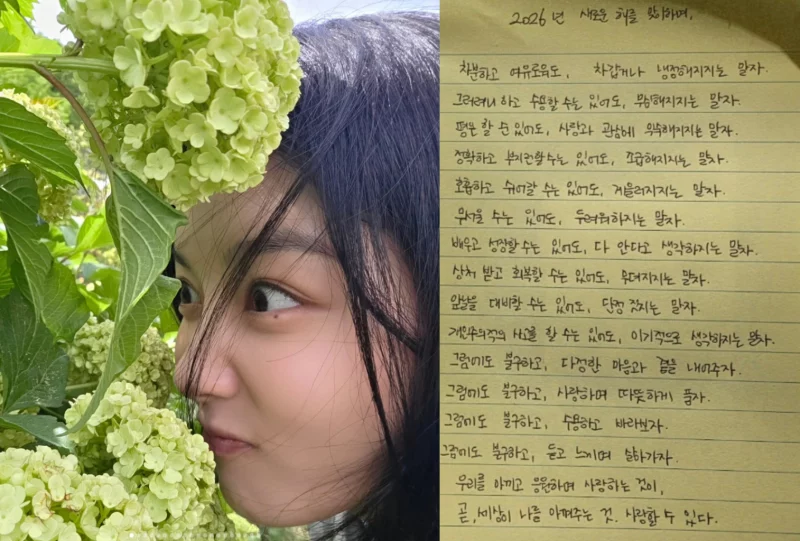 2026년 새로운 해를 맞이하며,
차분하고 여유로워도, 차갑거나 냉정해지지는 말자.
그러려니 하고 수용할 수는 있어도, 무심해지지는 말자.
평온 할 순 있어도, 사랑과 관심에 우수해지지는 말자.
정확하고 부지런할 수는 있어도, 조급해지지는 말자.
호흡하고 쉬어갈 수는 있어도, 게을러지지는 말자.
무서울 수는 있어도, 두려워하지는 말자.
배우고 성장할 수는 있어도, 다 안다고 생각하지는 말자.
상처 받고 회복할 수는 있어도, 무뎌지지는 말자.
앞날을 대비할 수는 있어도, 단정 짓지는 말자.
개인주의적 사고를 할 수는 있어도, 이기적으로 생각하지는 말자.
그럼에도 불구하고, 다정한 마음과 곁을 내어주자.
그럼에도 불구하고, 사랑하며 따뜻하게 품자.
그럼에도 불구하고, 수용하고 바라보자.
그럼에도 불구하고, 듣고 느끼며 살아가자.
우리를 아끼고 응원하며 사랑하는 것이,
곧, 세상이 나를 아껴주는 것. 사랑할 수 있다.